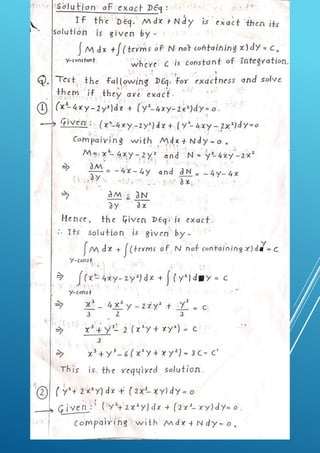 Solution of exact DEq:
If the DEq. Mdx+Ndy is exact then its
solution is given by -
∫M dx + ∫(terms of N not containing x)dy = C,
y-constant
where C is constant of Integration.
Q. Test the following DEq. for exactness and solve
them if they are exact.
① (x²-4xy-2y²)dx + (y²-4xy-2x²)dy=0.
→ Given: (x²-4xy-2y²)dx + (y²-4xy-2x²)dy=0
Compairing with Mdx+Ndy=0,
M = x²-4xy-2y² and N = y²-4xy-2x²
⇒ ∂M/∂y = -4x-4y and ∂N/∂x = -4y-4x
⇒ ∂M/∂y = ∂N/∂x
Hence, the Given DEq. is exact.
∴ Its solution is given by -
∫M dx + ∫(terms of N not containing x)dy = C
y-const
⇒ ∫(x²-4xy-2y²)dx + ∫(y²)dy = C
y-const
⇒ x³/3 - 4x²/2 y - 2xy² + y³/3 = C
⇒ x³+y³/3 - 2(x²y+xy²) = C
⇒ x³+y³-6(x²y+xy²) = 3C = C'
This is the required solution.
② (y²+2x²y)dx + (2x³-xy)dy=0
→ Given: (y²+2x²y)dx + (2x³-xy)dy=0.
compairing with Mdx+Ndy=0,